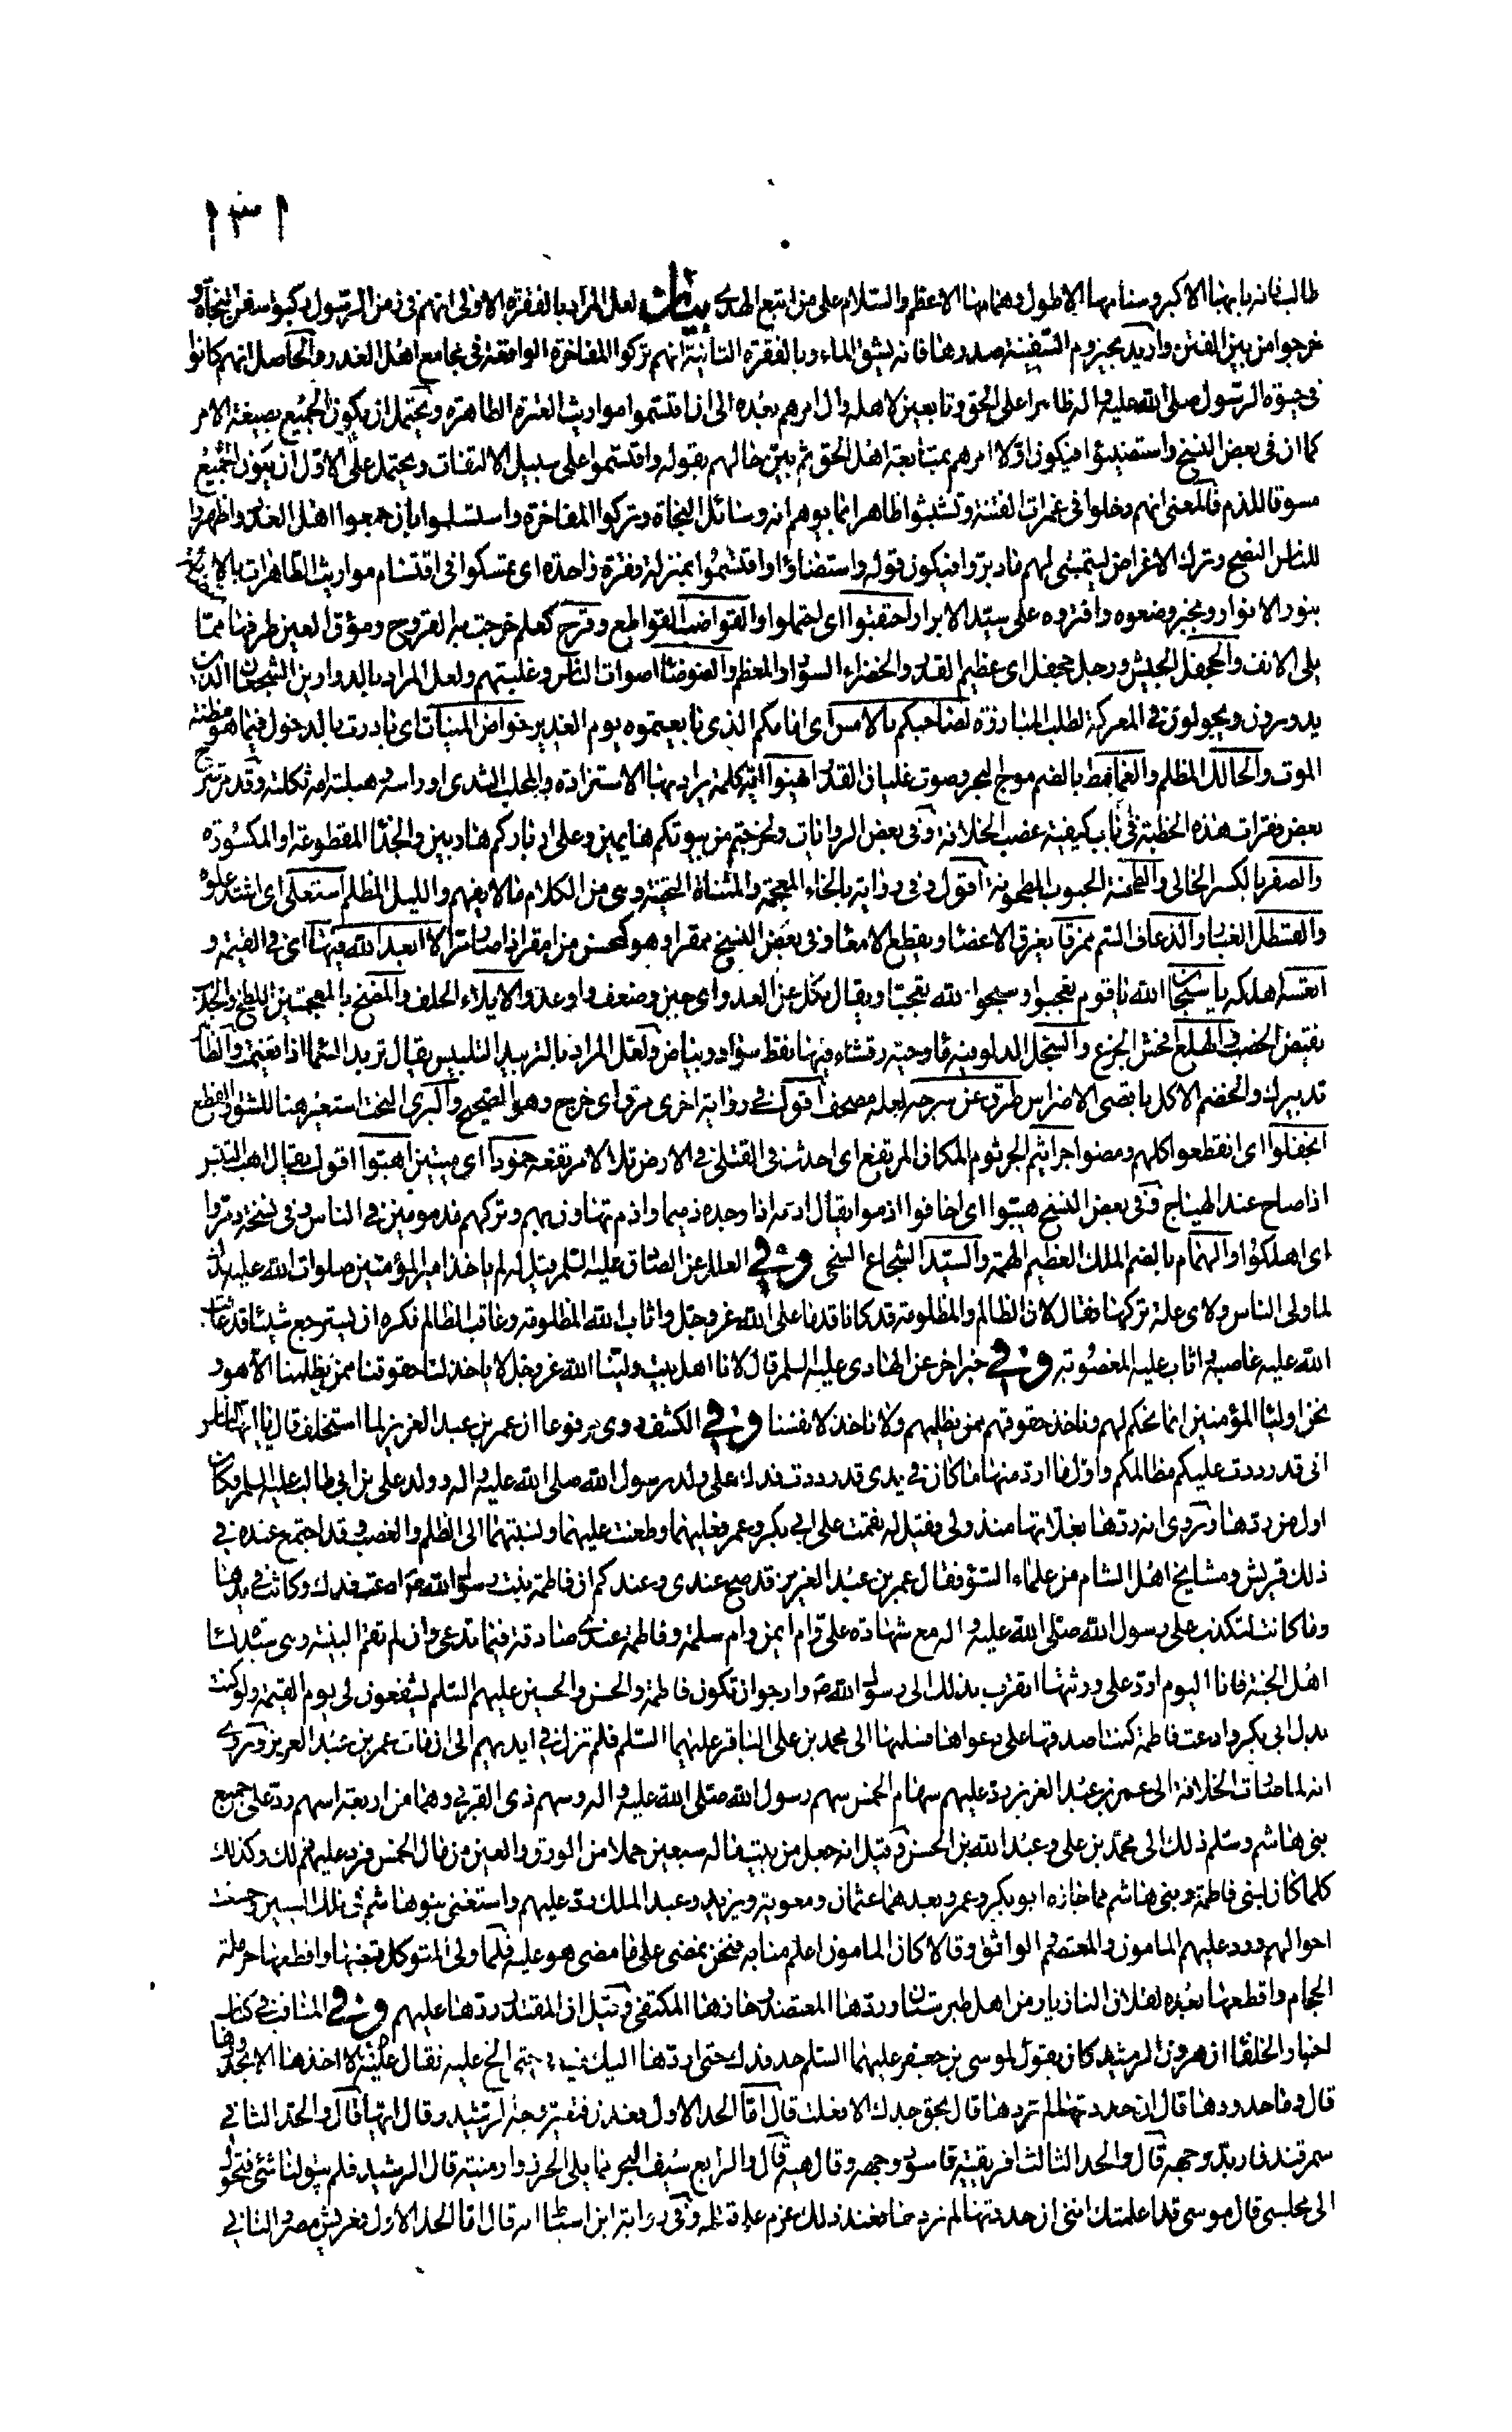 ١٣١
طالب فانه بابها الاكبر وسنامها الاطول وهمامها الاعظم والسلام على من اتبع الهدى بيان لعل المراد بالفقرة الاولى انهم في زمن الرسول ركبوا سفن النجاة و
خرجوا من بين الفتن واريد بحيزوم السفينة صدرها فانه يشق الماء وبالفقرة الثانية انهم تركوا المفاخرة الواقعة في مجامع اهل الغدر والحاصل انهم كانوا
في حيوة الرسول صلى الله عليه واله ظاهرا على الحق وتابعين لاهله وال امرهم بعده الى ان اقتسموا مواريث العترة الطاهرة ويحتمل ان يكون الجميع بصيغة الامر
كما ان في بعض النسخ واستضيئوا فيكون اولا امرهم بمتابعة اهل الحق ثم بين حالهم بقوله واقتسموا على سبيل الالتفات ويحتمل على الاول ان يكون الجميع
مسوقا للذم فالمعنى انهم دخلوا في غمرات الفتنة وتشبثوا ظاهرا بما يوهم انه وسائل النجاة وتركوا المفاخرة واستسلموا بان جمعوا اهل الغدر واظهروا
للناس النصح وترك الاغراض ليتمشى لهم ما دبروا فيكون قوله واستضاؤا واقتسموا بمنزلة فقرة واحدة اى تمسكوا في اقتسام مواريث الطاهرات
بنور الانوار وبخبر وضعوه وافتروه على سيد الابرار احتقبوا اى احتملوا والقواضب القواطع وقرح كعلم خرجت به القروح ومؤق العين طرفها مما
يلى الانف والجحفل الجيش ورجل جحفل اى عظيم القدر والخضراء السواد المعظم والضوضا اصوات الناس وغلبتهم ولعل المراد بالدوارين الشجعان الذين
يدورون ويجولون في المعركة لطلب المبارزة لصاحبكم بالامس اى امامكم الذى بايعتموه يوم الغدير خواض المنيات اى بادرت بالدخول فيما هو مظنة
الموت والحالك المظلم والغطامط بالضم موج البحر وصوت غليان القدر ايهنوا ايه كلمة يراد بها الاستزادة والمحلب الثدى او راسه هبلته امه ثكلته وقد مر شرح
بعض فقرات هذه الخطبة في باب كيفية غصب الخلافة وفي بعض الروايات ولخرجتم من بيوتكم هايمين وعلى ادباركم هاربين والجذا المقطوعة او المكسورة
والصفر بالكسر الخالى والطحنة الحبوب المطحونة اقول وفي رواية بالخاء المعجمة والمثناة التحتية وهى من الكلام ما لا يفهم والليل المظلم استعلى اى اشتد علوه
والقسطل الغبار والذعاف السم ممزقا يفرق الاعضا ويقطع الامعا وفي بعض النسخ ممقرا وهو كمحسن من امقر اذا صار مرا الا ابعد الله فيها اى في القيمة و
اتعسه اهلكه يا سبحان الله يا قوم تعجبوا وسبحوا لله تعجبا ويقال نكل عن العدو اى جبن وضعف واوعد والايلاء الحلف والمضخ بالمعجمتين اللطخ والجدب
نقيض الخصب والهلع افحش الجزع والسجل الدلو وفيه ما وحية رقشاء فيها نقط سواد وبياض ولعل المراد بالتربيد التلبيس يقال تربد السما اذا تغيمت
تدبيرك والخضم الاكل باقصى الاضراس طرق عن سرحه لعله مصحف اقول في رواية اخرى مرق اى خرج وهو الصحيح والبرى النحت استعير هنا للشق والقطع
انجفلوا اى انقطعوا كلهم ومضوا جراثيم الجرثوم المكان المرتفع اى احدث في القتلى في الارض تلالا مرتفعة جنودا اى ميتين اهتبوا اقول يقال اهب التيس
اذا صاح عند الهياج وفي بعض النسخ هيبوا اى اخافوا اذموا يقال اذمه اذا وجده ذميما واذم تهاون بهم وتركهم مذمومين في الناس وفي نسخة دمروا
اى اهلكوا والهمام بالضم الملك العظيم الهمة والسيد الشجاع السخى وفي العلل عن الصادق عليه السلم قيل له لم لم ياخذ امير المؤمنين صلوات الله عليه فدك
لما ولى الناس ولاى علة تركها فقال لان الظالم والمظلومة قد كانا قدما على الله عز وجل واثاب الله المظلومة وعاقب الظالم فكره ان يسترجع شيئا قد عاقب
الله عليه غاصبه واثاب عليه المغصوبة وفي خبر اخر عن الهادى عليه السلم قال لانا اهل بيت ولينا الله عز وجل لا ياخذ لنا حقوقنا ممن يظلمنا الا هو و
نحن اولياء المؤمنين انما نحكم لهم وناخذ حقوقهم ممن يظلمهم ولا ناخذ لانفسنا وفي الكشف وروى مرفوعا ان عمر بن عبد العزيز لما استخلف قال يا ايها الناس
انى قد رددت عليكم مظالمكم واول ما ارد منها ما كان في يدى قد رددت فدك على ولد رسول الله صلى الله عليه واله وولد على بن ابى طالب عليه السلم فكان
اول من ردها وروى انه ردها بغلاتها منذ ولى فقيل له نقمت على ابى بكر وعمر فعلهما وطعنت عليهما ونسبتهما الى الظلم والغصب وقد اجتمع عنده في
ذلك قريش ومشايخ اهل الشام من علماء السوء فقال عمر بن عبد العزيز قد صح عندى وعندكم ان فاطمة بنت رسول الله ص ادعت فدك وكانت في يدها
وما كانت لتكذب على رسول الله صلى الله عليه واله مع شهادة على وام ايمن وام سلمة وفاطمة عندى صادقة فيما تدعى وان لم تقم البينة وهى سيدة نساء
اهل الجنة فانا اليوم ارد على ورثتها اتقرب بذلك الى رسول الله ص وارجو ان تكون فاطمة والحسن والحسين عليهم السلم يشفعون لى يوم القيمة ولو كنت
بدل ابى بكر وادعت فاطمة كنت اصدقها على دعواها فسلمها الى محمد بن على الباقر عليهما السلم فلم تزل في ايديهم الى ان مات عمر بن عبد العزيز وروى
انه لما صارت الخلافة الى عمر بن عبد العزيز رد عليهم سهام الخمس سهم رسول الله صلى الله عليه واله وسهم ذى القربى وهما من اربعة اسهم رد على جميع
بنى هاشم وسلم ذلك الى محمد بن على وعبد الله بن الحسن وقيل انه جعل من بيت ماله سبعين حملا من الورق والعين من مال الخمس فرد عليهم ذلك وكذلك
كلما كان لبنى فاطمة وبنى هاشم مما حازه ابو بكر وعمر وبعدهما عثمان ومعوية ويزيد وعبد الملك رد عليهم واستغنى بنو هاشم في تلك السنين وحسنت
احوالهم ورد عليهم المامون والمعتصم الواثق وقالا كان المامون اعلم منا به فنحن نمضى على ما مضى هو عليه فلما ولى المتوكل قبضها واقطعها حرملة
الحجام واقطعها بعده لفلان النازيار من اهل طبرستان وردها المعتضد وحازها المكتفى وقيل ان المقتدر ردها عليهم وفي المناقب في كتاب
اخبار الخلفا ان هرون الرشيد كان يقول لموسى بن جعفر عليهما السلم حد فدك حتى اردها اليك فيابى حتى الح عليه فقال ع لا اخذها الا بحدودها
قال وما حدودها قال ان حددتها لم تردها قال بحق جدك الا فعلت قال اما الحد الاول فعدن فتغير وجه الرشيد وقال ايها قال والحد الثانى
سمرقند فاربد وجهه قال والحد الثالث افريقية فاسود وجهه وقال هيه قال والرابع سيف البحر مما يلى الخزر وارمنية قال الرشيد فلم يبق لنا شئ فتحول
الى مجلسى قال موسى قد اعلمتك اننى ان حددتها لم تردها فعند ذلك عزم على قتله وفي رواية ابن اسباط انه قال اما الحد الاول فعريش مصر والثانى